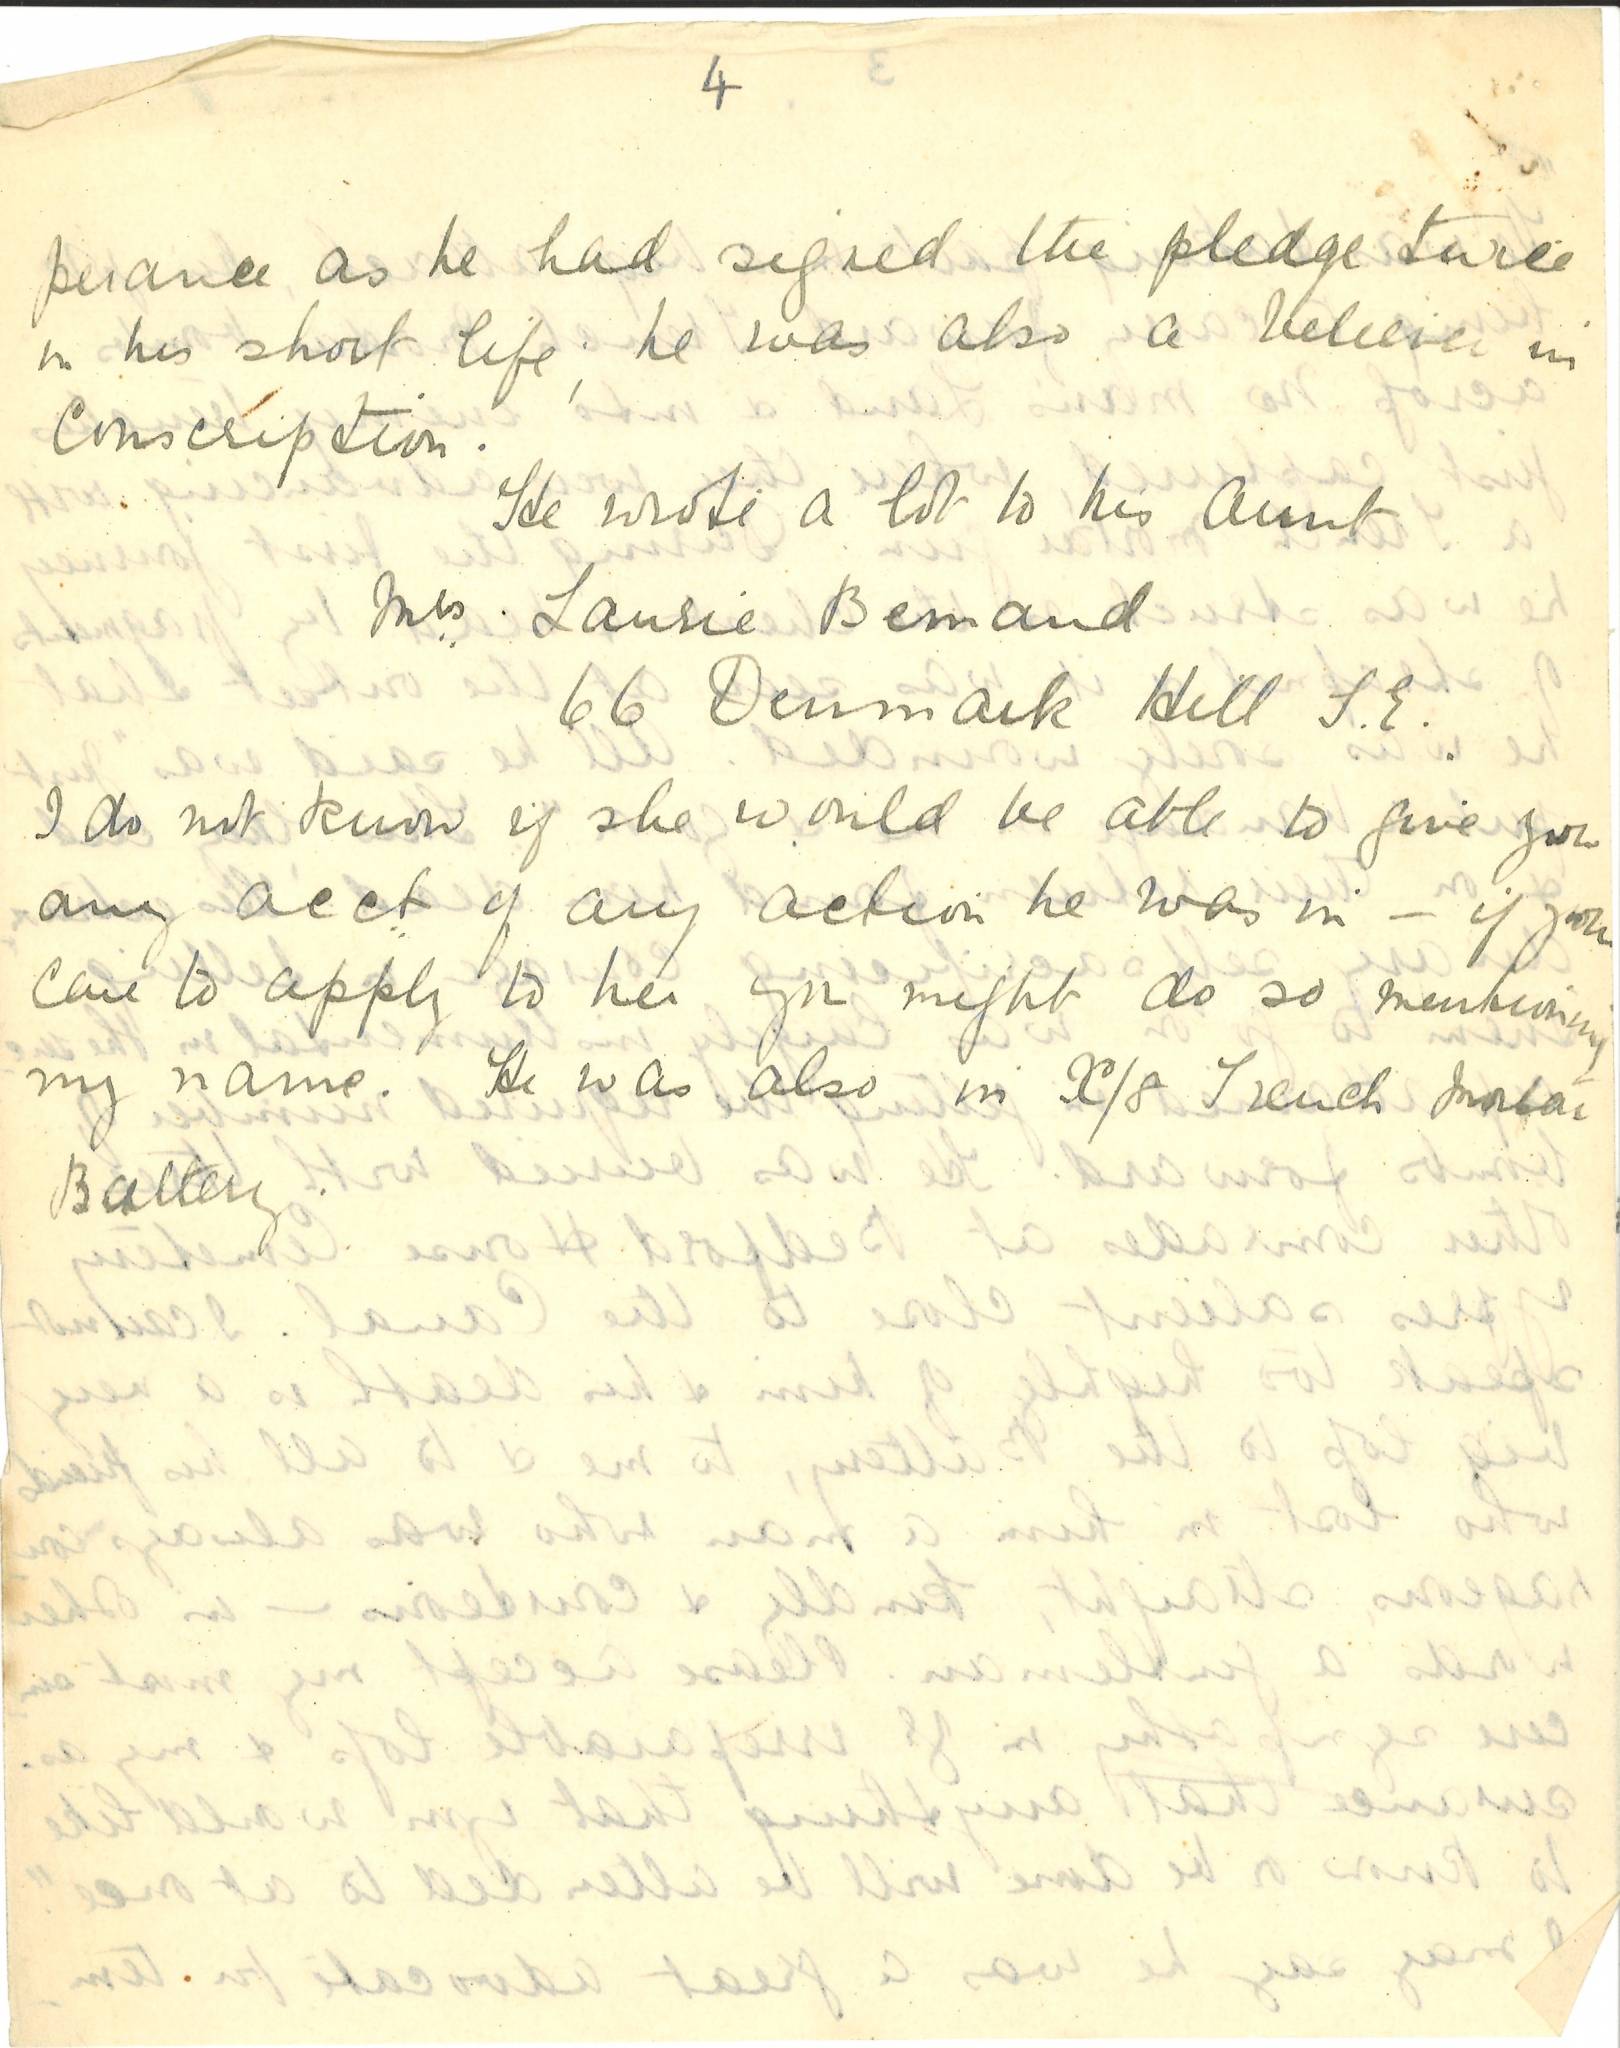 4
perance as he had signed the pledge twice
in his short life; he was also a believer in
Conscription.
He wrote a lot to his Aunt
Mrs. Laurie Bemand
66 Denmark Hill S.E.
I do not know if she would be able to give you
any acct of any action he was in – if you
care to apply to her you might do so mentioning
my name. He was also in X/8 Trench Mortar
Battery.